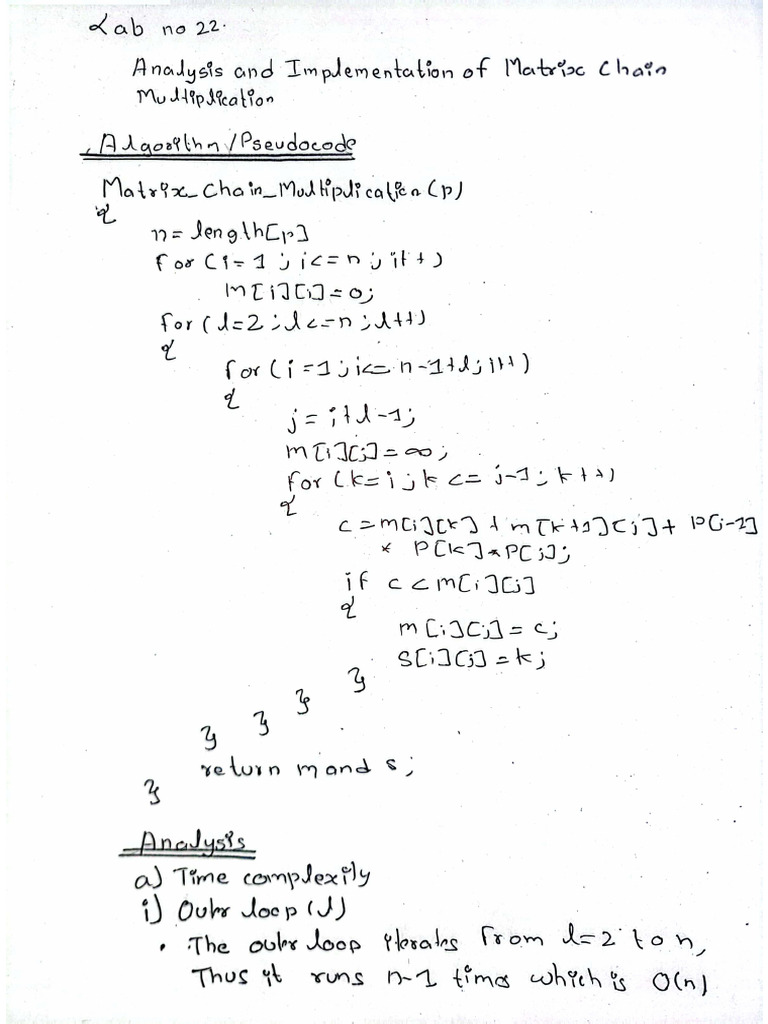 Lab no 22.
Analysis and Implementation of Matrix Chain
Multiplication
Algorithm/Pseudocode
Matrix_Chain_Multiplication(p)
{
n = length[p]
for (i=1; i<=n; i++)
m[i][i]=0;
for (l=2; l<=n; l++)
{
for (i=1; i<= n-1+l; i++)
{
j = i+l-1;
m[i][j] = ∞;
for (k=i; k <= j-1; k++)
{
c = m[i][k] + m[k+1][j] + P[i-1]
* P[k]*P[j];
if c < m[i][j]
{
m[i][j] = c;
S[i][j] = k;
}
}
}
}
return m and s;
}
Analysis
a) Time complexity
i) Outer loop (l)
• The outer loop iterates from l=2 to n,
Thus it runs n-1 times which is O(n)